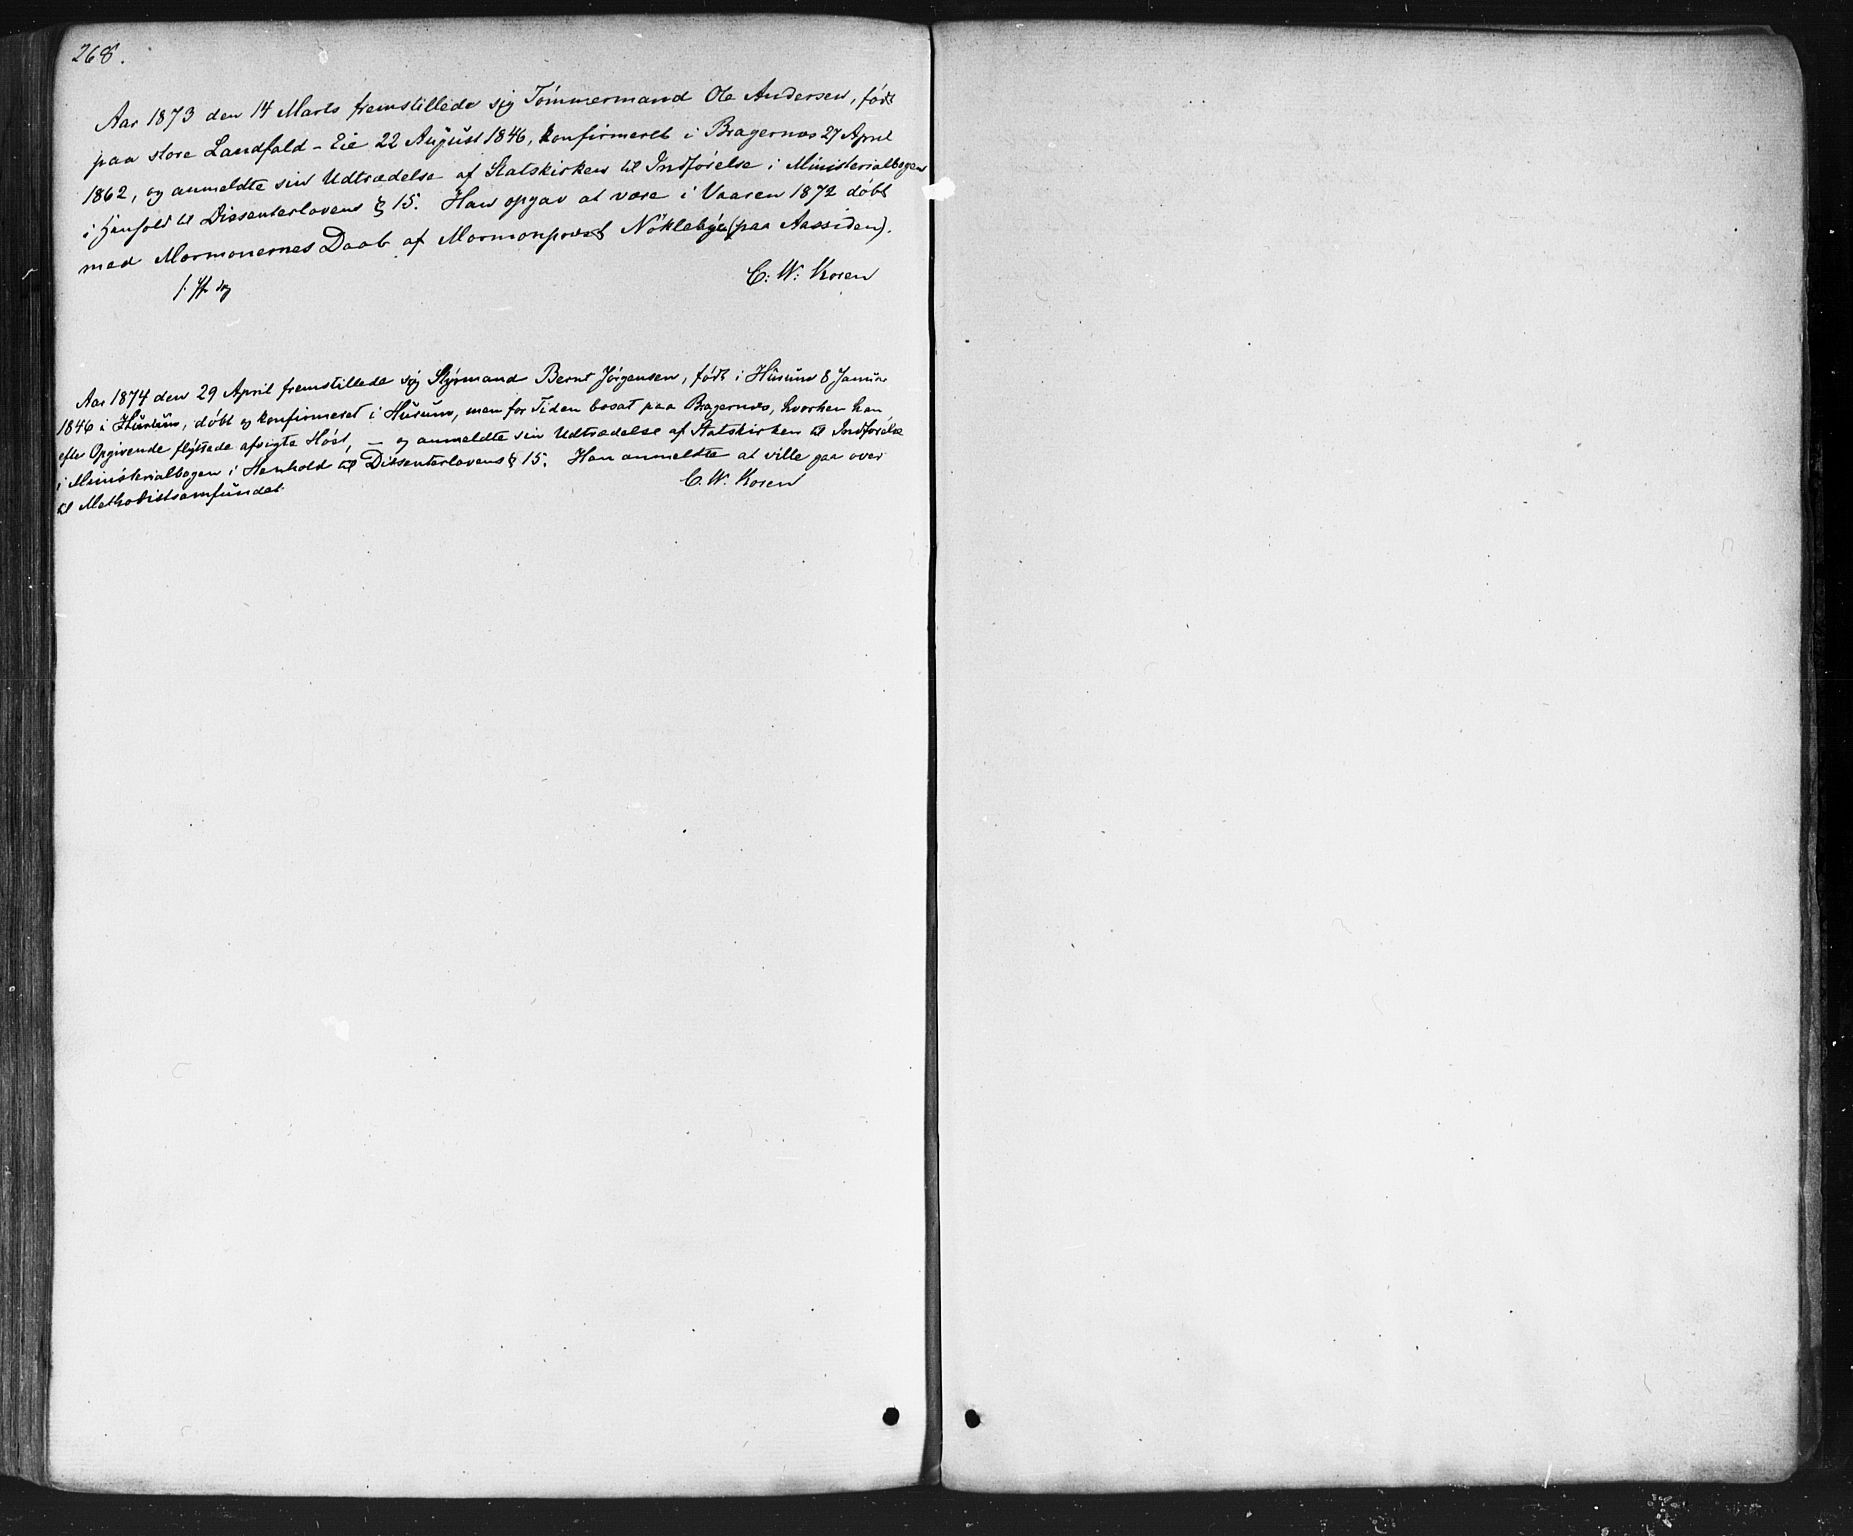 268.
Aar 1873 den 14 Marts fremstillede sig Tömmermand Ole Andersen, født
paa store Landfald-Eie 22 August 1846, konfirmeret i Bragernæs 27 April
1862, og anmeldte sin Udtrædelse af Statskirken til Indförelse i Ministerialbogen
i Henhold til Dissenterlovens § 15. Han opgav at være i Vaaren 1872 döbt
med Mormonernes Daab af Mormonpræst Nöklebye (paa Aassiden).
C. W. Rosen
Aar 1874 den 29 April fremstillede sig Styrmand Bernt Jörgensen, født i Hurum 8 Januar
1846 i Hurum, döbt og konfirmeret i Hurum, men for Tiden bosat paa Bragernæs, hvorhen han
efter Opgivende flyttede afvigte Höst, – og anmeldte sin Udtrædelse af Statskirken til Indförelse
i Ministerialbogen i Henhold til Dissenterlovens § 15. Han anmeldte at ville gaa over
til Methodistsamfundet.
C. W. Rosen